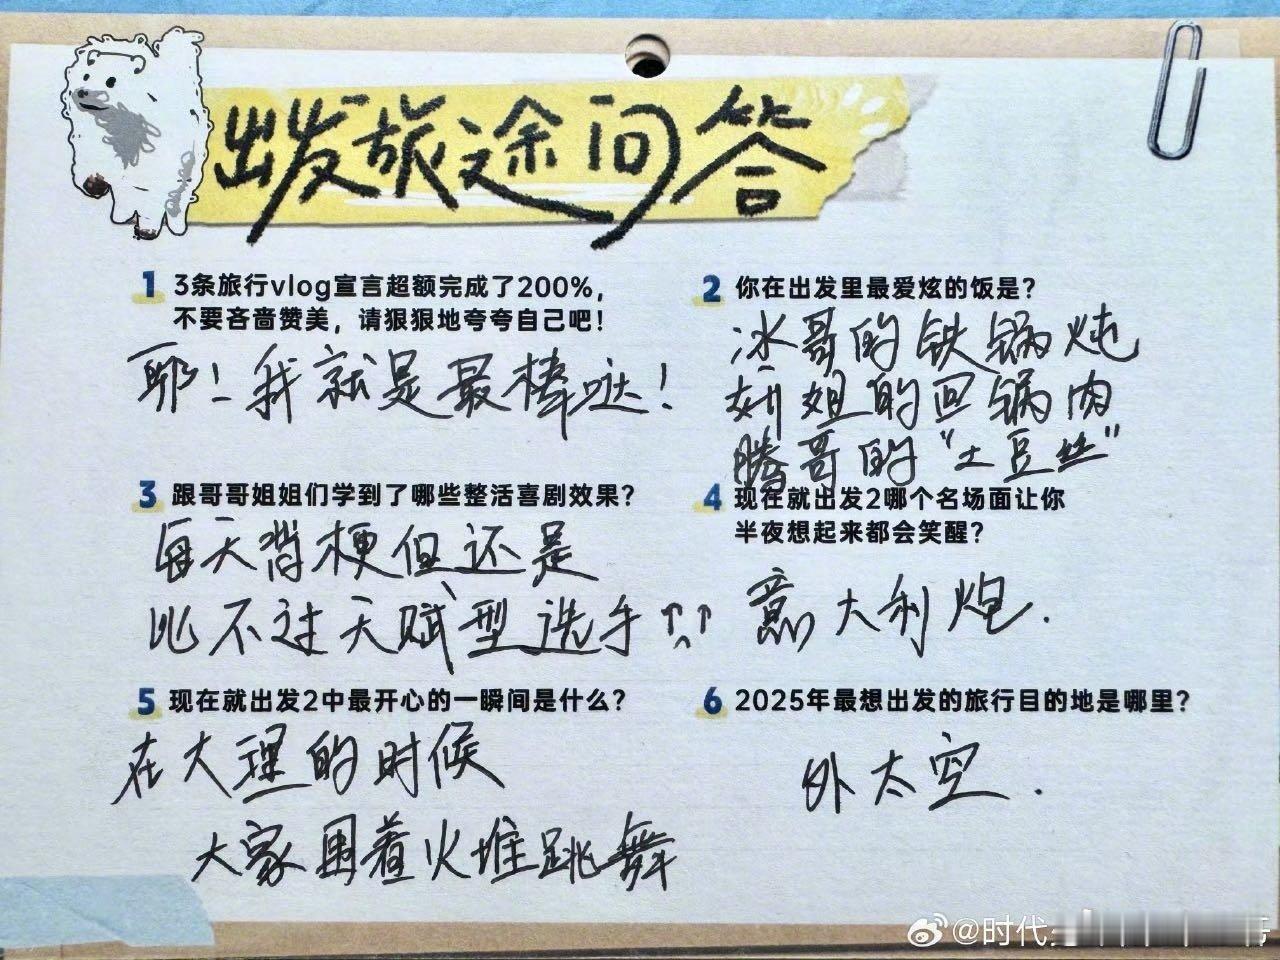 出发旅途问答
1 3条旅行vlog宣言超额完成了200%，
不要吝啬赞美，请狠狠地夸夸自己吧！
耶！我就是最棒哒！
2 你在出发里最爱炫的饭是？
冰哥的铁锅炖
妍姐的回锅肉
腾哥的“土豆丝”
3 跟哥哥姐姐们学到了哪些整活喜剧效果？
每天背梗但还是
比不过天赋型选手
4 现在就出发2哪个名场面让你
半夜想起来都会笑醒？
意大利炮.
5 现在就出发2中最开心的一瞬间是什么？
在大理的时候
大家围着火堆跳舞
6 2025年最想出发的旅行目的地是哪里？
外太空.
@时代